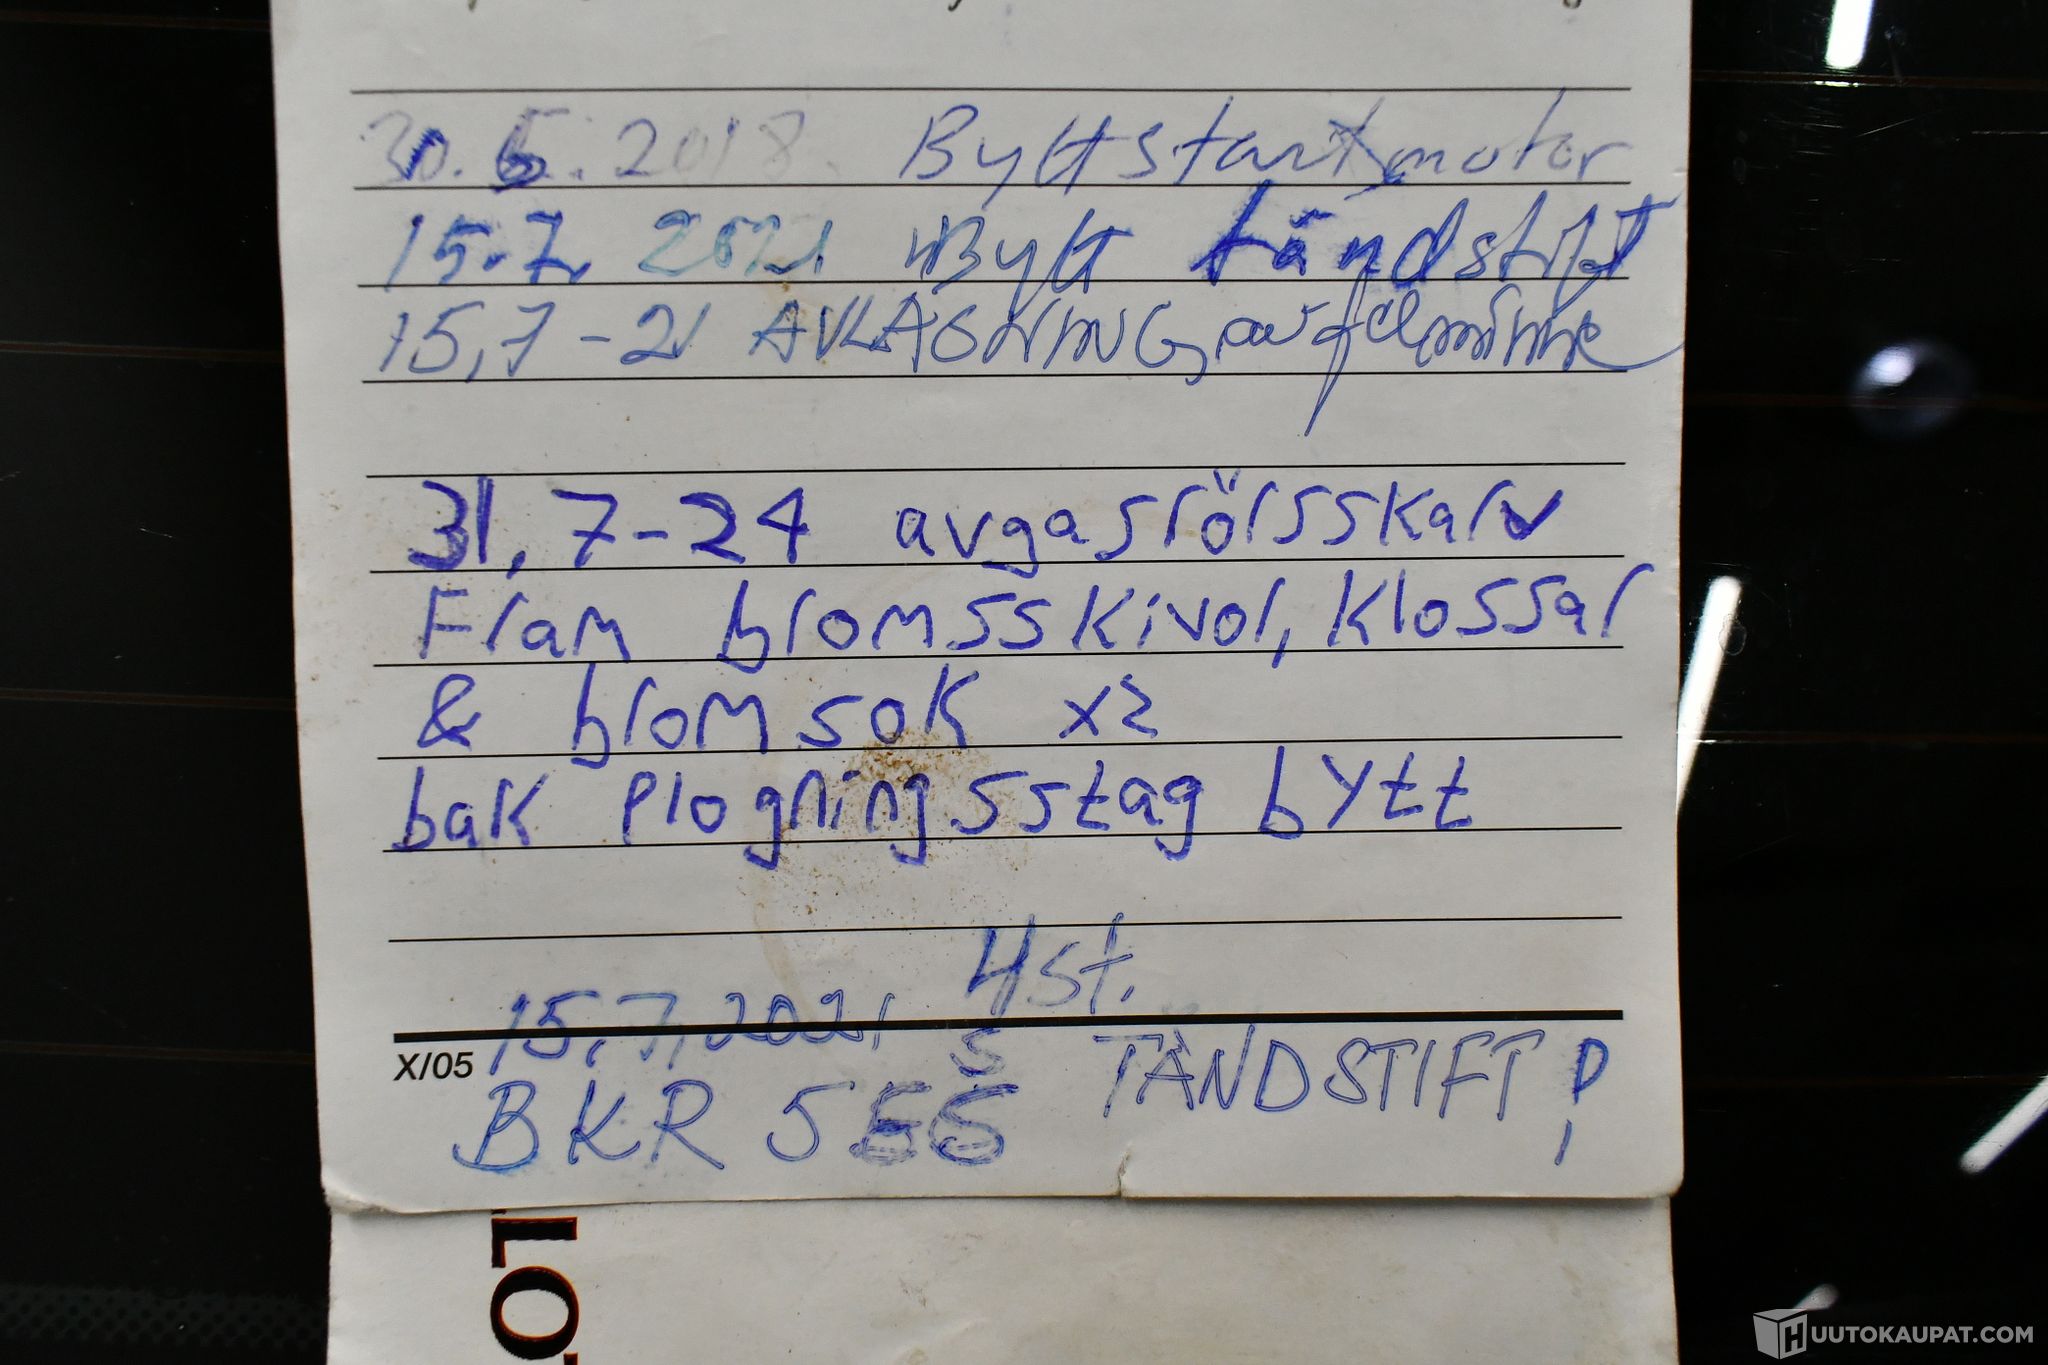 30.6.2018. Bytt startmotor
15.7. 2021 Bytt tändstift
15,7-21 AVLÄSNING, av felminne
31,7-24 avgasrörsskarv
Fram bromsskivor, klossar
& bromsok x2
bak plogningsstag bytt
4st.
15,7,2021
X/05
BKR 5ES TÄNDSTIFT!
LO
HUUTOKAUPAT.COM